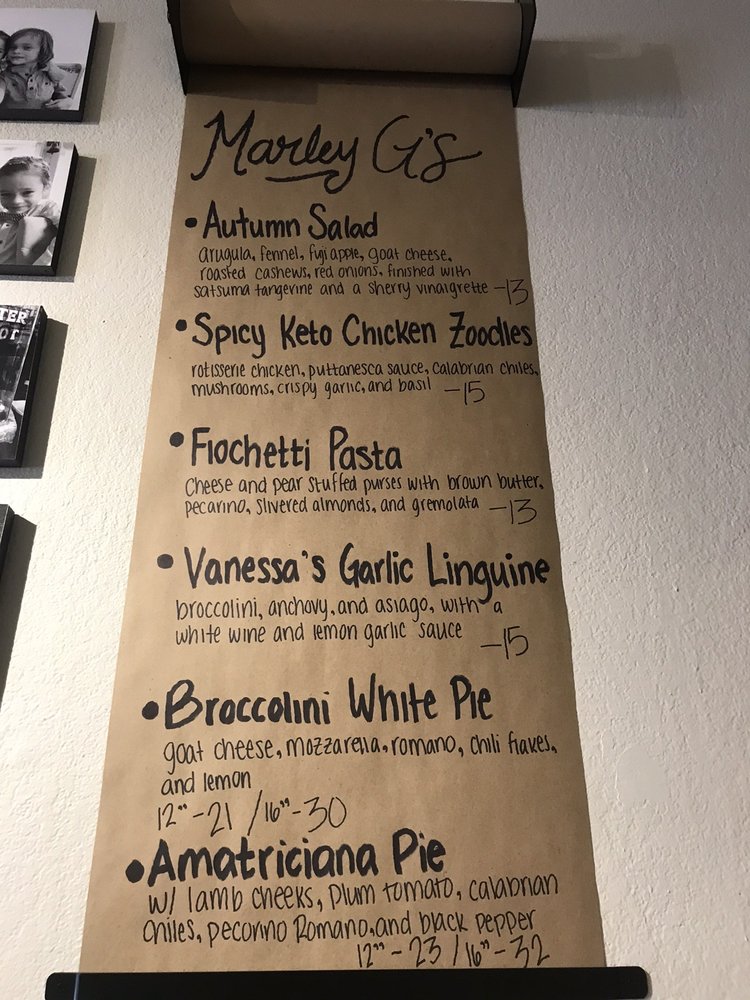 Marley G's
• Autumn Salad
arugula, fennel, fuji apple, goat cheese,
roasted cashews, red onions, finished with
satsuma tangerine and a sherry vinaigrette -13
• Spicy Keto Chicken Zoodles
rotisserie chicken, puttanesca sauce, calabrian chiles,
mushrooms, crispy garlic, and basil -15
• Fiochetti Pasta
Cheese and pear stuffed purses with brown butter,
pecarino, slivered almonds, and gremolata -13
• Vanessa's Garlic Linguine
broccolini, anchovy, and asiago, with a
white wine and lemon garlic sauce -15
• Broccolini White Pie
goat cheese, mozzarella, romano, chili flakes,
and lemon
12" -21 / 16" -30
• Amatriciana Pie
w/ lamb cheeks, plum tomato, calabrian
chiles, pecorino Romano, and black pepper
12" - 23 / 16" - 32